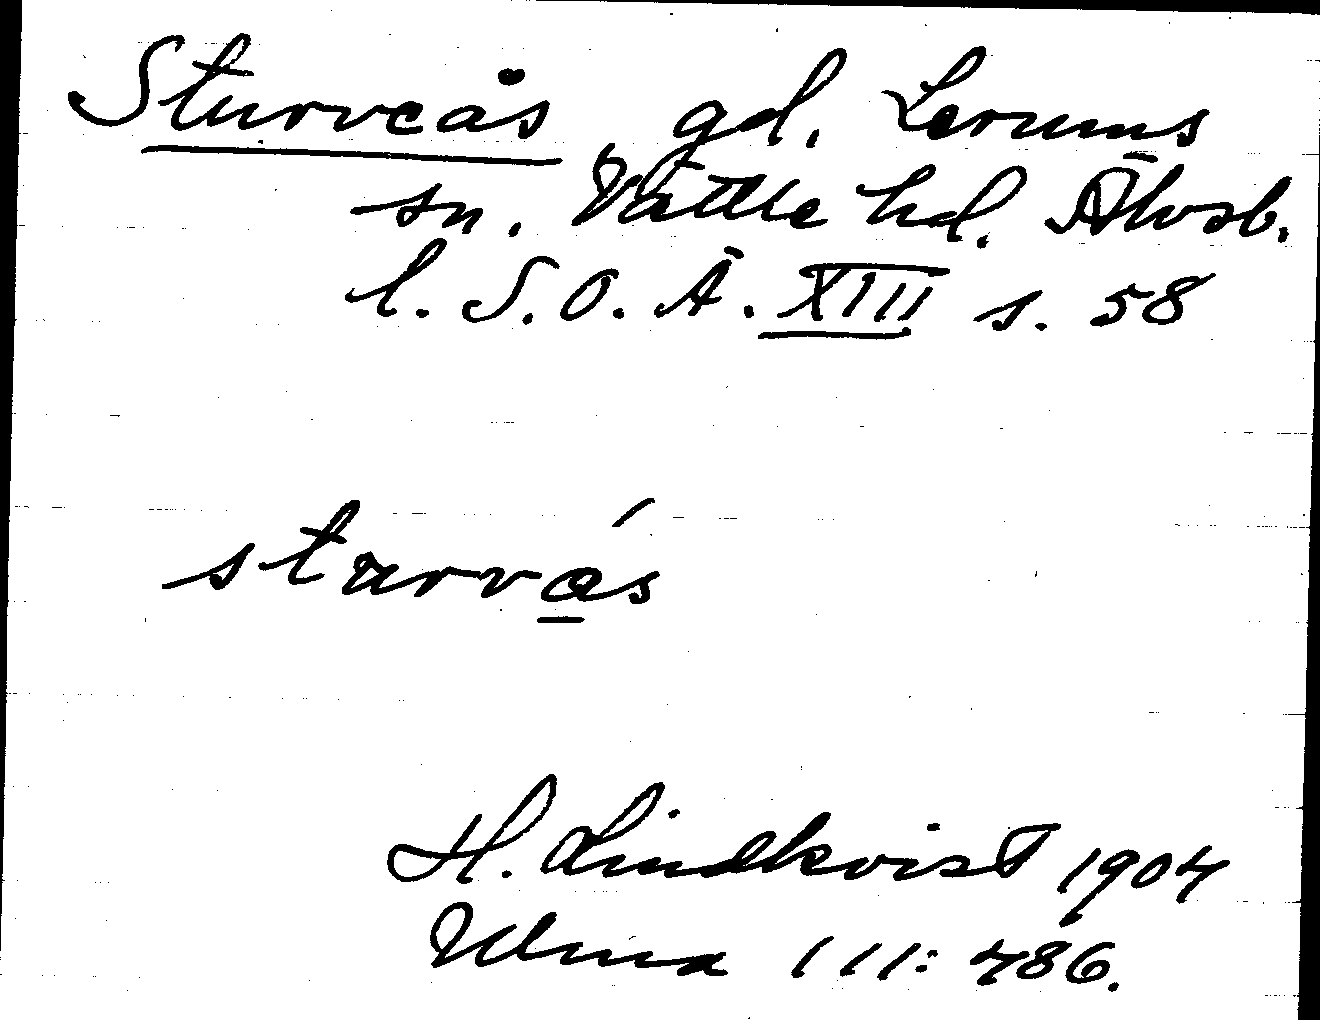 Sturveås gd. Lerums
sn. Vättle hd. Älvsb.
l. S.O.Ä. XIII s. 58
starvás
H. Lindkvist 1904
Ulma 111:486.